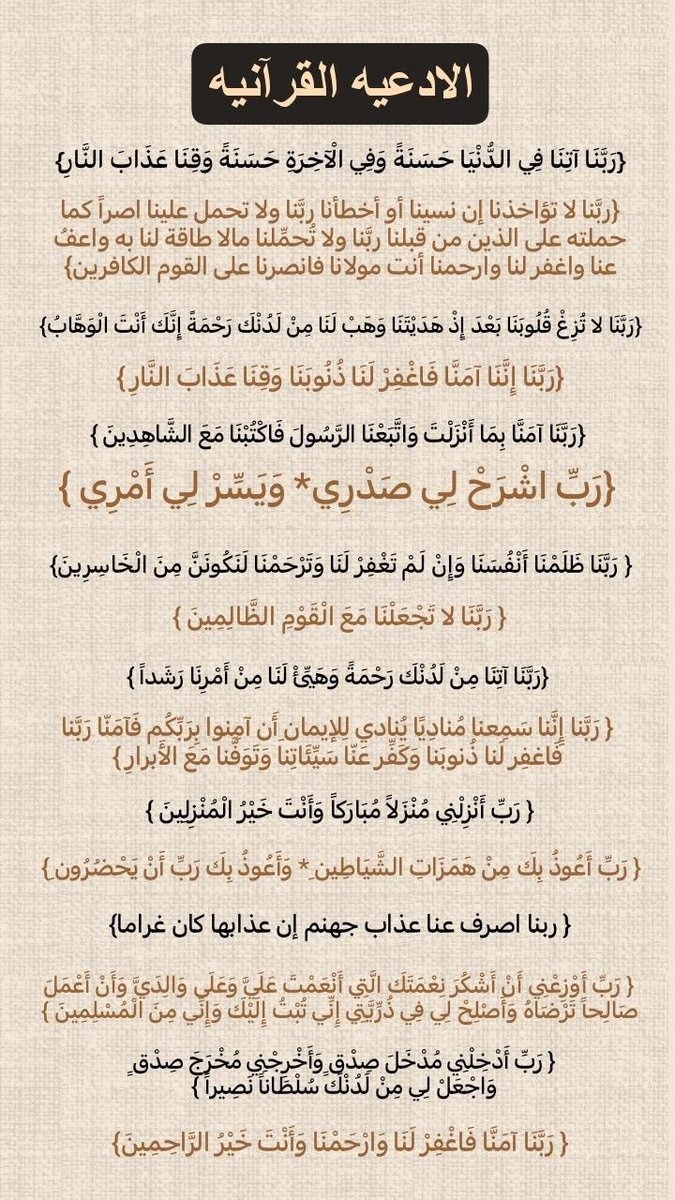 الادعيه القرآنيه
{رَبَّنَا آتِنَا فِي الدُّنْيَا حَسَنَةً وَفِي الْآخِرَةِ حَسَنَةً وَقِنَا عَذَابَ النَّارِ}
{ربَّنا لا تؤاخذنا إن نسينا أو أخطأنا ربَّنا ولا تحمل علينا اصراً كما
حملته على الذين من قبلنا ربَّنا ولا تُحمِّلنا مالا طاقة لنا به واعفُ
عنا واغفر لنا وارحمنا أنت مولانا فانصرنا على القوم الكافرين}
{رَبَّنَا لا تُزِغْ قُلُوبَنَا بَعْدَ إِذْ هَدَيْتَنَا وَهَبْ لَنَا مِنْ لَدُنْكَ رَحْمَةً إِنَّكَ أَنْتَ الْوَهَّابُ}
{رَبَّنَا إِنَّنَا آمَنَّا فَاغْفِرْ لَنَا ذُنُوبَنَا وَقِنَا عَذَابَ النَّارِ}
{رَبَّنَا آمَنَّا بِمَا أَنْزَلْتَ وَاتَّبَعْنَا الرَّسُولَ فَاكْتُبْنَا مَعَ الشَّاهِدِينَ }
{رَبِّ اشْرَحْ لِي صَدْرِي* وَيَسِّرْ لِي أَمْرِي }
{ رَبَّنَا ظَلَمْنَا أَنْفُسَنَا وَإِنْ لَمْ تَغْفِرْ لَنَا وَتَرْحَمْنَا لَنَكُونَنَّ مِنَ الْخَاسِرِينَ}
{ رَبَّنَا لا تَجْعَلْنَا مَعَ الْقَوْمِ الظَّالِمِينَ }
{رَبَّنَا آتِنَا مِنْ لَدُنْكَ رَحْمَةً وَهَيِّئْ لَنَا مِنْ أَمْرِنَا رَشَداً }
{ رَبَّنا إِنَّنا سَمِعنا مُنادِيًا يُنادي لِلإيمانِ أَن آمِنوا بِرَبِّكُم فَآمَنّا رَبَّنا
فَاغفِر لَنا ذُنوبَنا وَكَفِّر عَنّا سَيِّئَاتِنا وَتَوَفَّنا مَعَ الأَبرارِ }
{ رَبِّ أَنْزِلْنِي مُنْزَلاً مُبَارَكاً وَأَنْتَ خَيْرُ الْمُنْزِلِينَ }
{ رَبِّ أَعُوذُ بِكَ مِنْ هَمَزَاتِ الشَّيَاطِينِ * وَأَعُوذُ بِكَ رَبِّ أَنْ يَحْضُرُونِ }
{ ربنا اصرف عنا عذاب جهنم إن عذابها كان غراما}
{ رَبِّ أَوْزِعْنِي أَنْ أَشْكُرَ نِعْمَتَكَ الَّتِي أَنْعَمْتَ عَلَيَّ وَعَلَى وَالِدَيَّ وَأَنْ أَعْمَلَ
صَالِحاً تَرْضَاهُ وَأَصْلِحْ لِي فِي ذُرِّيَّتِي إِنِّي تُبْتُ إِلَيْكَ وَإِنِّي مِنَ الْمُسْلِمِينَ }
{ رَبِّ أَدْخِلْنِي مُدْخَلَ صِدْقٍ وَأَخْرِجْنِي مُخْرَجَ صِدْقٍ
وَاجْعَلْ لِي مِنْ لَدُنْكَ سُلْطَاناً نَصِيراً }
{ رَبَّنَا آمَنَّا فَاغْفِرْ لَنَا وَارْحَمْنَا وَأَنْتَ خَيْرُ الرَّاحِمِينَ}